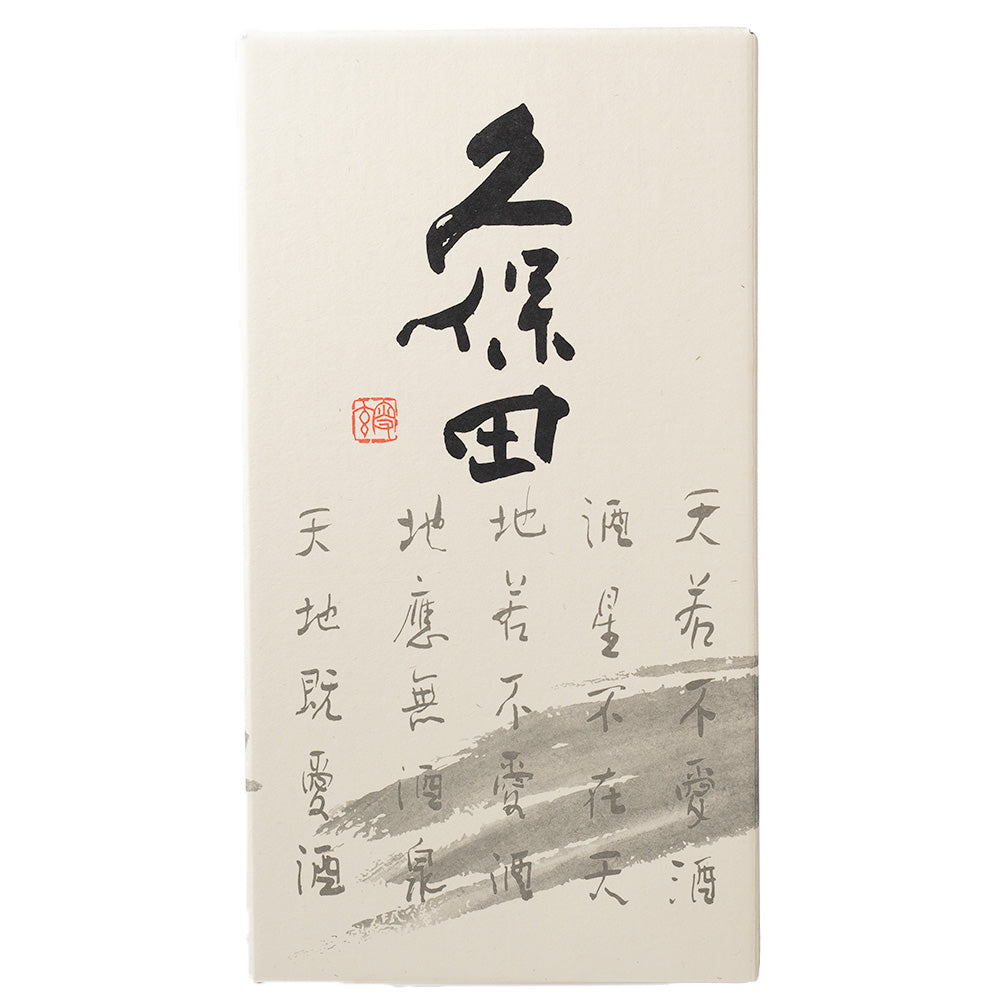 久保田
天若不愛酒
酒星不在天
地若不愛酒
地應無酒泉
天地既愛酒